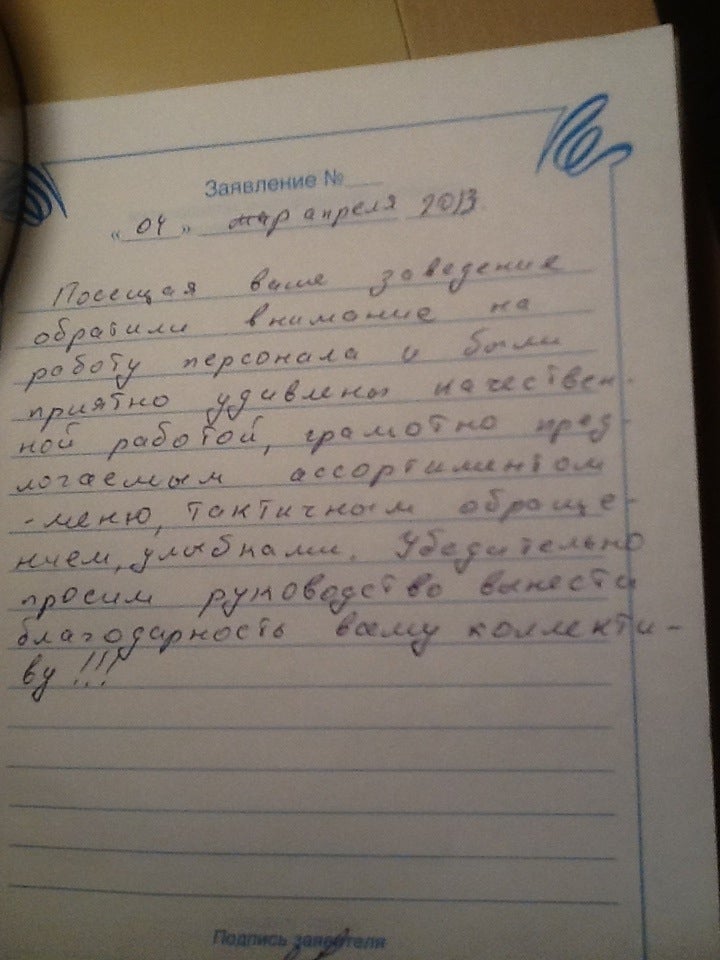 Заявление №
« 04 » апреля 2013
Посещая ваше заведение
обратили внимание на
работу персонала и были
приятно удивлены качествен-
ной работой, грамотно пред-
логаемым ассортиментом
-меню, тактичным обраще-
нием, улыбками. Убедительно
просим руководство вынести
благодарность всему коллекти-
ву !!!
Подпись заявителя